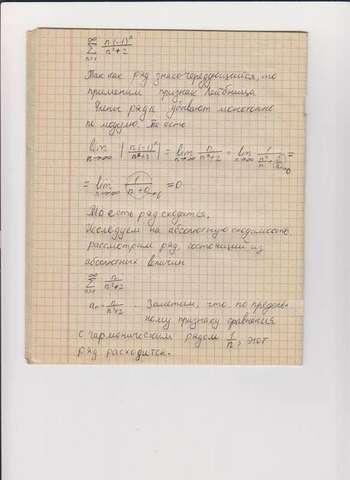 ∞
Σ n·(-1)ⁿ / n²+2
n=1
Так как ряд знакочередующийся, то
применим признак Лейбница
Члены ряда убывают монотонно
по модулю. То есть
lim n→∞ | n(-1)ⁿ / n²+2 | = lim n→∞ n / n²+2 = lim n→∞
= lim n→∞ 1 / n+0 = 0
То есть ряд сходится.
Исследуем на абсолютную сходимость
рассмотрим ряд, состоящий из
абсолютных величин
∞
Σ n / n²+2
n=1
aₙ = n / n²+2 . Заметим, что по предель-
ному признаку сравнения
с гармоническим рядом 1/n, этот
ряд расходится.